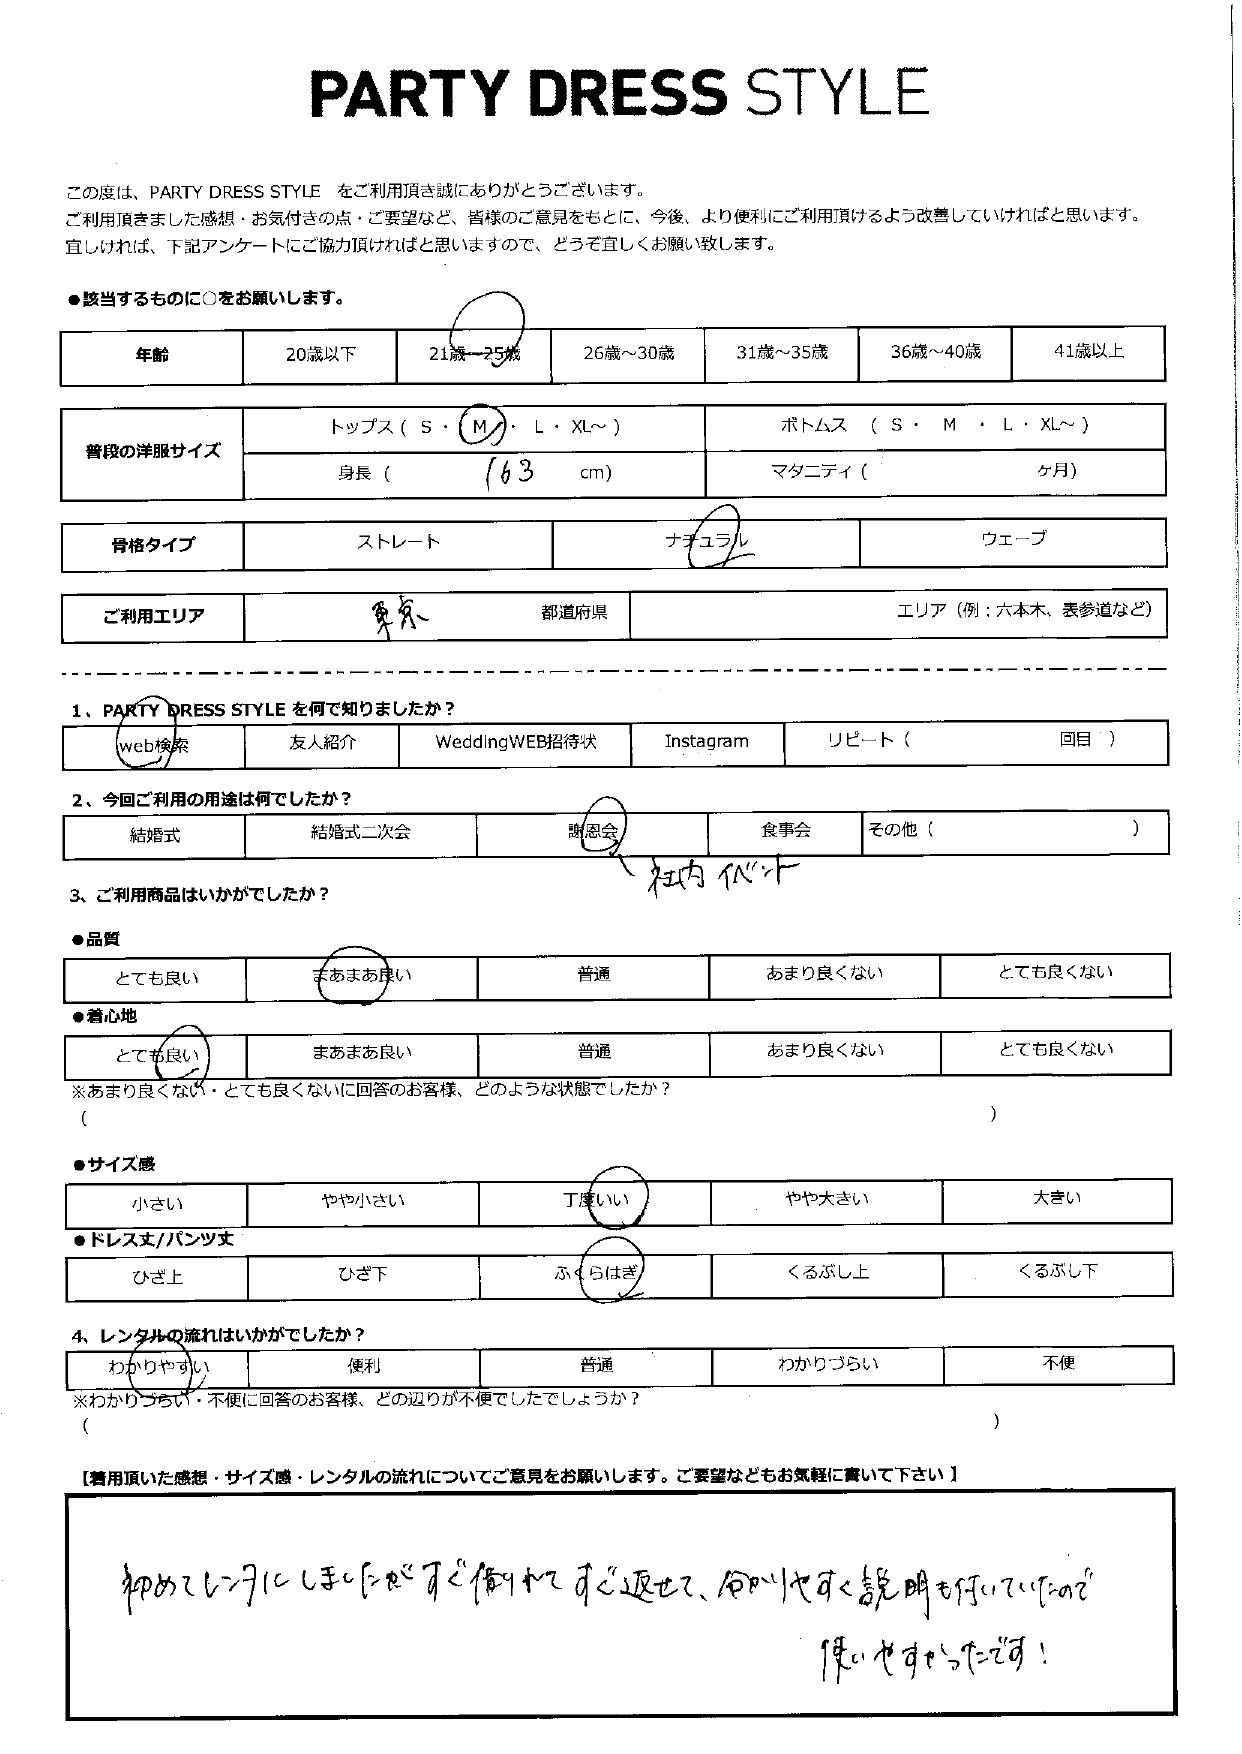 PARTY DRESS STYLE
この度は、PARTY DRESS STYLE をご利用頂き誠にありがとうございます。
ご利用頂きました感想・お気付きの点・ご要望など、皆様のご意見をもとに、今後、より便利にご利用頂けるよう改善していければと思います。
宜しければ、下記アンケートにご協力頂ければと思いますので、どうぞ宜しくお願い致します。
●該当するものに○をお願いします。
年齢 20歳以下 21歳～25歳 26歳～30歳 31歳～35歳 36歳～40歳 41歳以上
普段の洋服サイズ
トップス ( S ・ M ・ L ・ XL～ ) ボトムス ( S ・ M ・ L ・ XL～ )
身長 ( 163 cm) マタニティ ( ケ月)
骨格タイプ ストレート ナチュラル ウェーブ
ご利用エリア 東京 都道府県 エリア（例：六本木、表参道など）
1、PARTY DRESS STYLE を何で知りましたか？
web検索 友人紹介 WeddingWEB招待状 Instagram リピート ( 回目 )
2、今回ご利用の用途は何でしたか？
結婚式 結婚式二次会 謝恩会 食事会 その他 ( )
社内イベント
3、ご利用商品はいかがでしたか？
●品質
とても良い まあまあ良い 普通 あまり良くない とても良くない
●着心地
とても良い まあまあ良い 普通 あまり良くない とても良くない
※あまり良くない・とても良くないに回答のお客様、どのような状態でしたか？
( )
●サイズ感
小さい やや小さい 丁度いい やや大きい 大きい
●ドレス丈/パンツ丈
ひざ上 ひざ下 ふくらはぎ くるぶし上 くるぶし下
4、レンタルの流れはいかがでしたか？
わかりやすい 便利 普通 わかりづらい 不便
※わかりづらい・不便に回答のお客様、どの辺りが不便でしたでしょうか？
( )
【着用頂いた感想・サイズ感・レンタルの流れについてご意見をお願いします。ご要望などもお気軽に書いて下さい】
初めてレンタルしましたがすぐ借りれてすぐ返せて、分かりやすく説明も付いていたので
使いやすかったです！